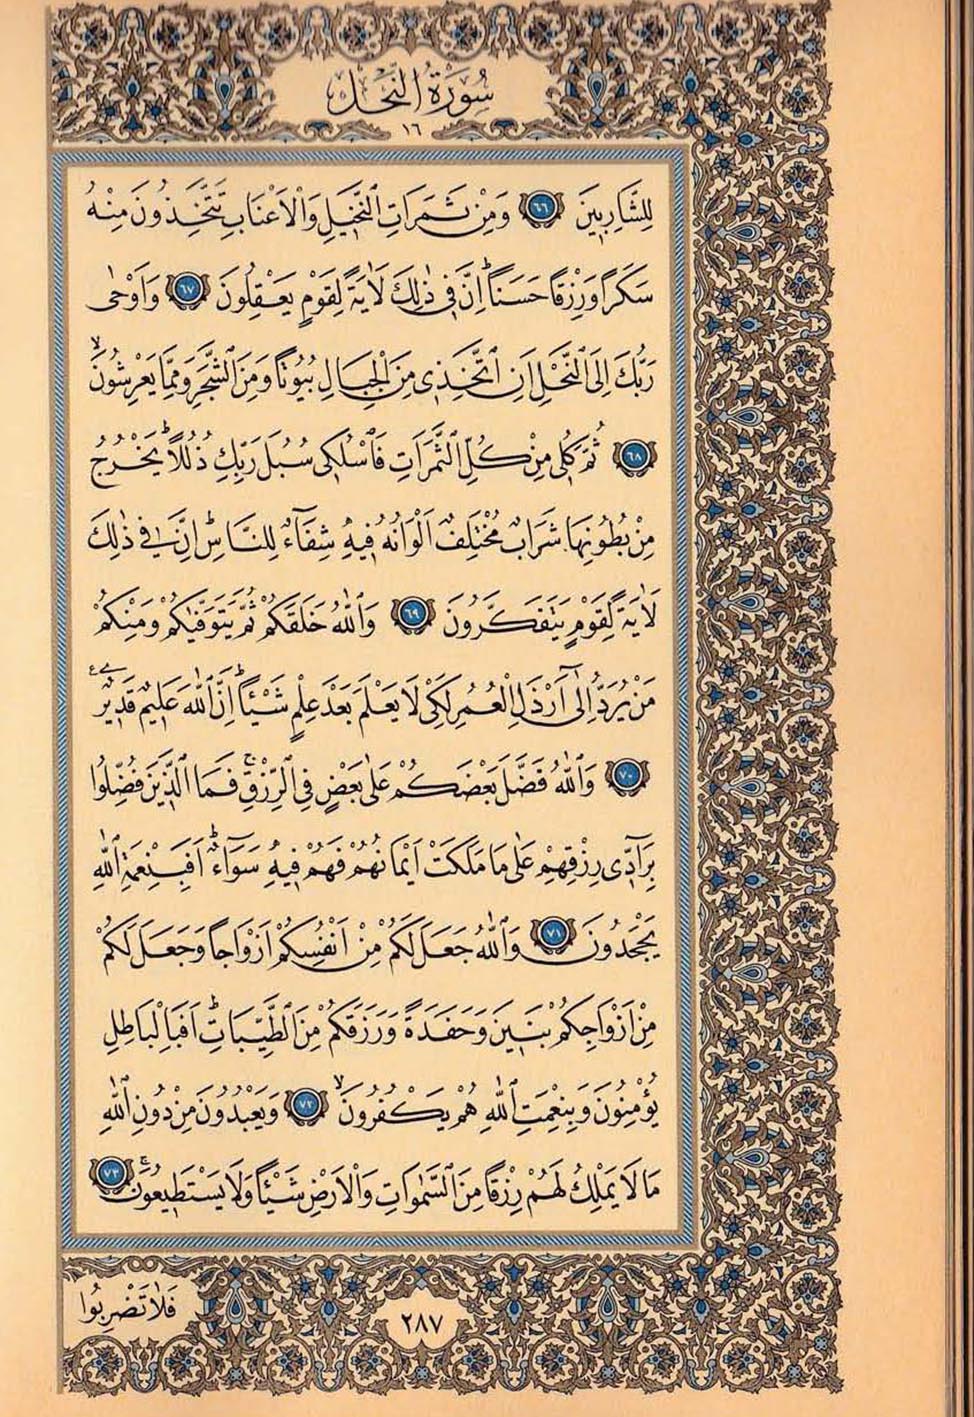 سُورَةُ النَّحْلِ
١٦
لِلشَّارِبِينَ ٦٦ وَمِنْ ثَمَرَاتِ ٱلنَّخِيلِ وَالْاَعْنَابِ تَتَّخِذُونَ مِنْهُ
سَكَرًا وَرِزْقًا حَسَنًاۜ اِنَّ فِي ذٰلِكَ لَاٰيَةً لِقَوْمٍ يَعْقِلُونَ ٦٧ وَاَوْحٰى
رَبُّكَ اِلَى ٱلنَّحْلِ اَنِ ٱتَّخِذِي مِنَ ٱلْجِبَالِ بُيُوتًا وَمِنَ ٱلشَّجَرِ وَمِمَّا يَعْرِشُونَۙ
٦٨ ثُمَّ كُلِي مِنْ كُلِّ ٱلثَّمَرَاتِ فَٱسْلُكِي سُبُلَ رَبِّكِ ذُلُلًاۜ يَخْرُجُ
مِنْ بُطُونِهَا شَرَابٌ مُخْتَلِفٌ اَلْوَانُهُ فِيهِ شِفَٓاءٌ لِلنَّاسِۜ اِنَّ فِي ذٰلِكَ
لَاٰيَةً لِقَوْمٍ يَتَفَكَّرُونَ ٦٩ وَٱللّٰهُ خَلَقَكُمْ ثُمَّ يَتَوَفّٰيكُمْ وَمِنْكُمْ
مَنْ يُرَدُّ اِلٰٓى اَرْذَلِ ٱلْعُمُرِ لِكَيْ لَا يَعْلَمَ بَعْدَ عِلْمٍ شَيْـًٔاۜ اِنَّ ٱللّٰهَ عَلِيمٌ قَدِيرٌ۟
٧٠ وَٱللّٰهُ فَضَّلَ بَعْضَكُمْ عَلٰى بَعْضٍ فِي ٱلرِّزْقِۚ فَمَا ٱلَّذِينَ فُضِّلُوا
بِرَٓادِّي رِزْقِهِمْ عَلٰى مَا مَلَكَتْ اَيْمَانُهُمْ فَهُمْ فِيهِ سَوَٓاءٌۜ اَفَبِنِعْمَةِ ٱللّٰهِ
يَجْحَدُونَ ٧١ وَٱللّٰهُ جَعَلَ لَكُمْ مِنْ اَنْفُسِكُمْ اَزْوَاجًا وَجَعَلَ لَكُمْ
مِنْ اَزْوَاجِكُمْ بَنِينَ وَحَفَدَةً وَرَزَقَكُمْ مِنَ ٱلطَّيِّبَاتِۜ اَفَبِالْبَاطِلِ
يُؤْمِنُونَ وَبِنِعْمَتِ ٱللّٰهِ هُمْ يَكْفُرُونَۙ ٧٢ وَيَعْبُدُونَ مِنْ دُونِ ٱللّٰهِ
مَا لَا يَمْلِكُ لَهُمْ رِزْقًا مِنَ ٱلسَّمٰوَاتِ وَالْاَرْضِ شَيْـًٔا وَلَا يَسْتَطِيعُونَۚ ٧٣
فَلَا تَضْرِبُوا
٢٨٧